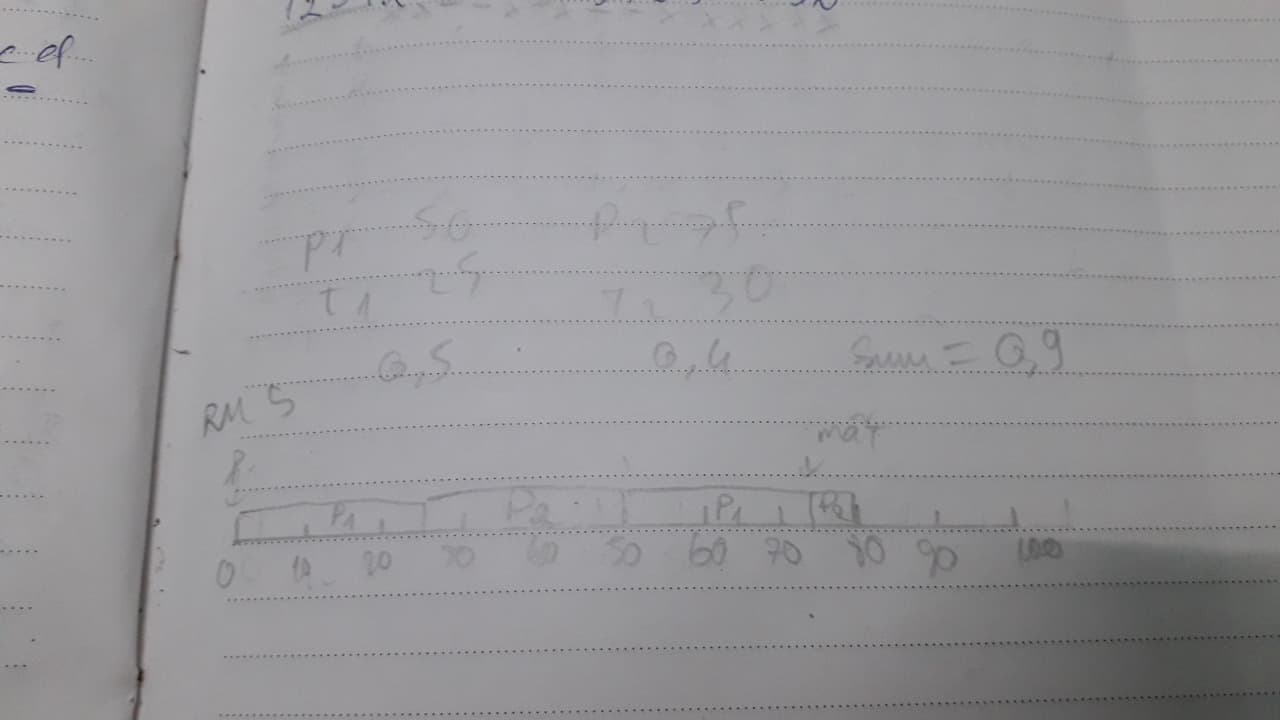 c d
P1 50 P2 75
T1 25 T2 30
0,5 0,4 Sum = 0,9
RMS
mất
P1 P2 P1 P2
0 10 20 30 40 50 60 70 80 90 100